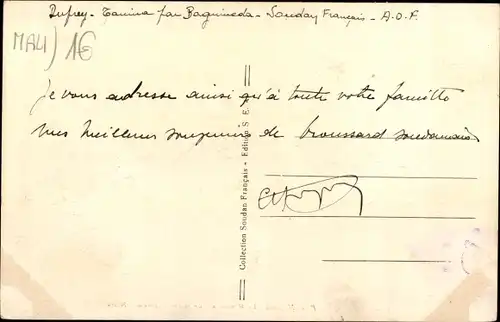 Dupuy - Tanina par Baguineda - Soudan Français - A.O.F.
MALI) 1€
Je vous adresse ainsi qu'à toute votre famille
mes meilleurs souvenirs de broussard soudanais
Collection Soudan Français - Edition S. E.